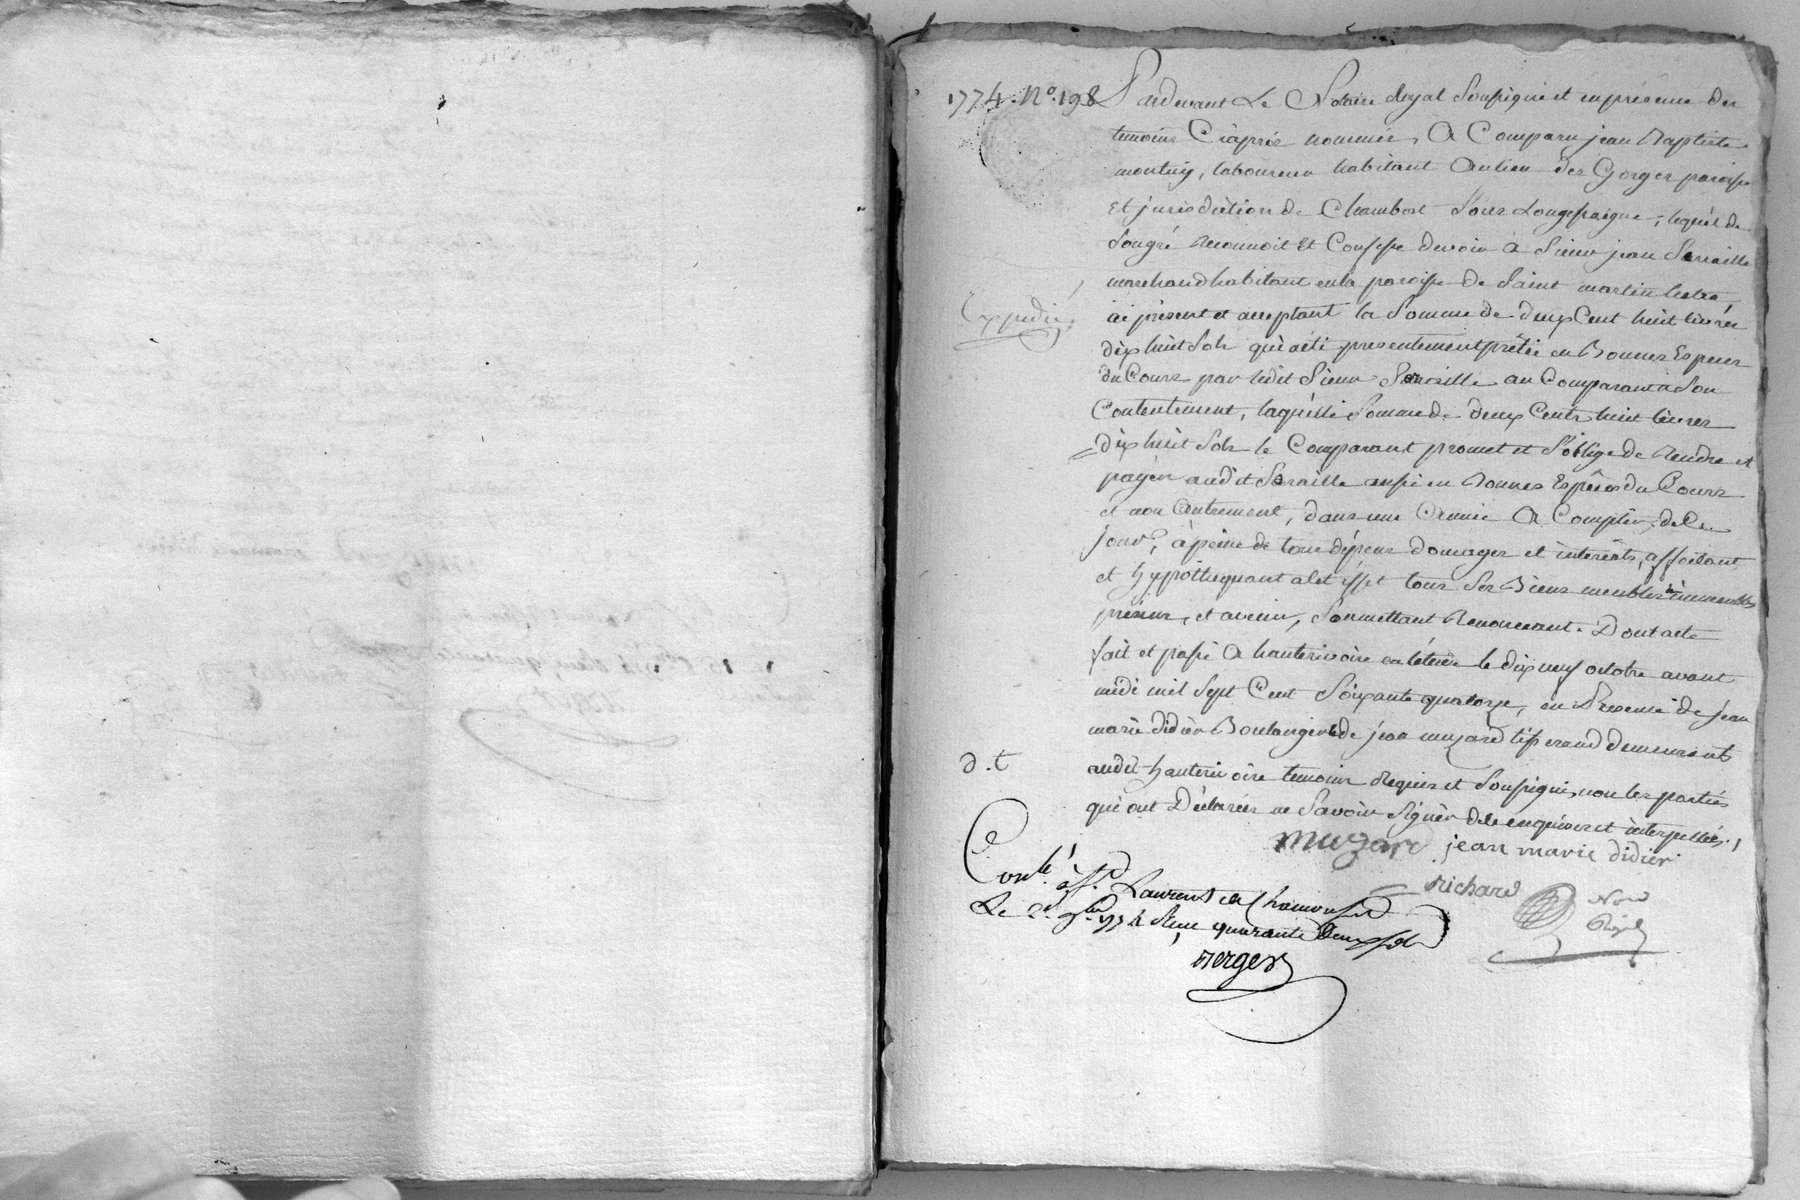 1774. No. 198 Pardevant Le Notaire Royal Soussigné et en présence des
temoins Ciaprès nommés, A Comparu jean Baptiste
montuy, laboureur habitant au lieu des Gorges paroisse
Et jurisdiction de Chambost Sous Longessaigne, lequel de
Songré Reconnoit et Confesse devoir à Sieur jean Seraille
marchand habitant en la paroisse de Saint martin lestra,
Expedié
ici présent et acceptant la Somme de deux Cent huit livres
dix huit Sols qui a été presentement prêtée en Bonnes Especes
du Cours par ledit Sieur Seraille au Comparant à Son
Contentement, laquelle Somme de deux Cents huit livres
dix huit Sols le Comparant promet et S'oblige de Rendre et
payer audit Seraille aussi en Bonnes Espèces du Cours
et non Autrement, dans une Année A Compter de Ce
jour, à peine de tous dépens domages et interêts, affectant
et hypothequant a Cet effet tous Ses Biens meubles immeubles
présens, et avenir, Soumettant Renonceant. Dont acte
fait et passé A hauterivoire en l'étude le dix neuf octobre avant
midi mil Sept Cent Soixante quatorze, en Présence de jean
marie didier Boulanger et de jean muzard tisserand demeurants
d. t
audit hauterivoire temoins Requis et Soussignés, non les parties
qui ont Déclarées ne Savoir Signer de ce enquises et interpellées,
muzard jean marie didier
Conlé à St Laurent de Chamousset
richard Nore Royal
Le 2e 9bre 1774 Reçu quarante Deux sols
Berger